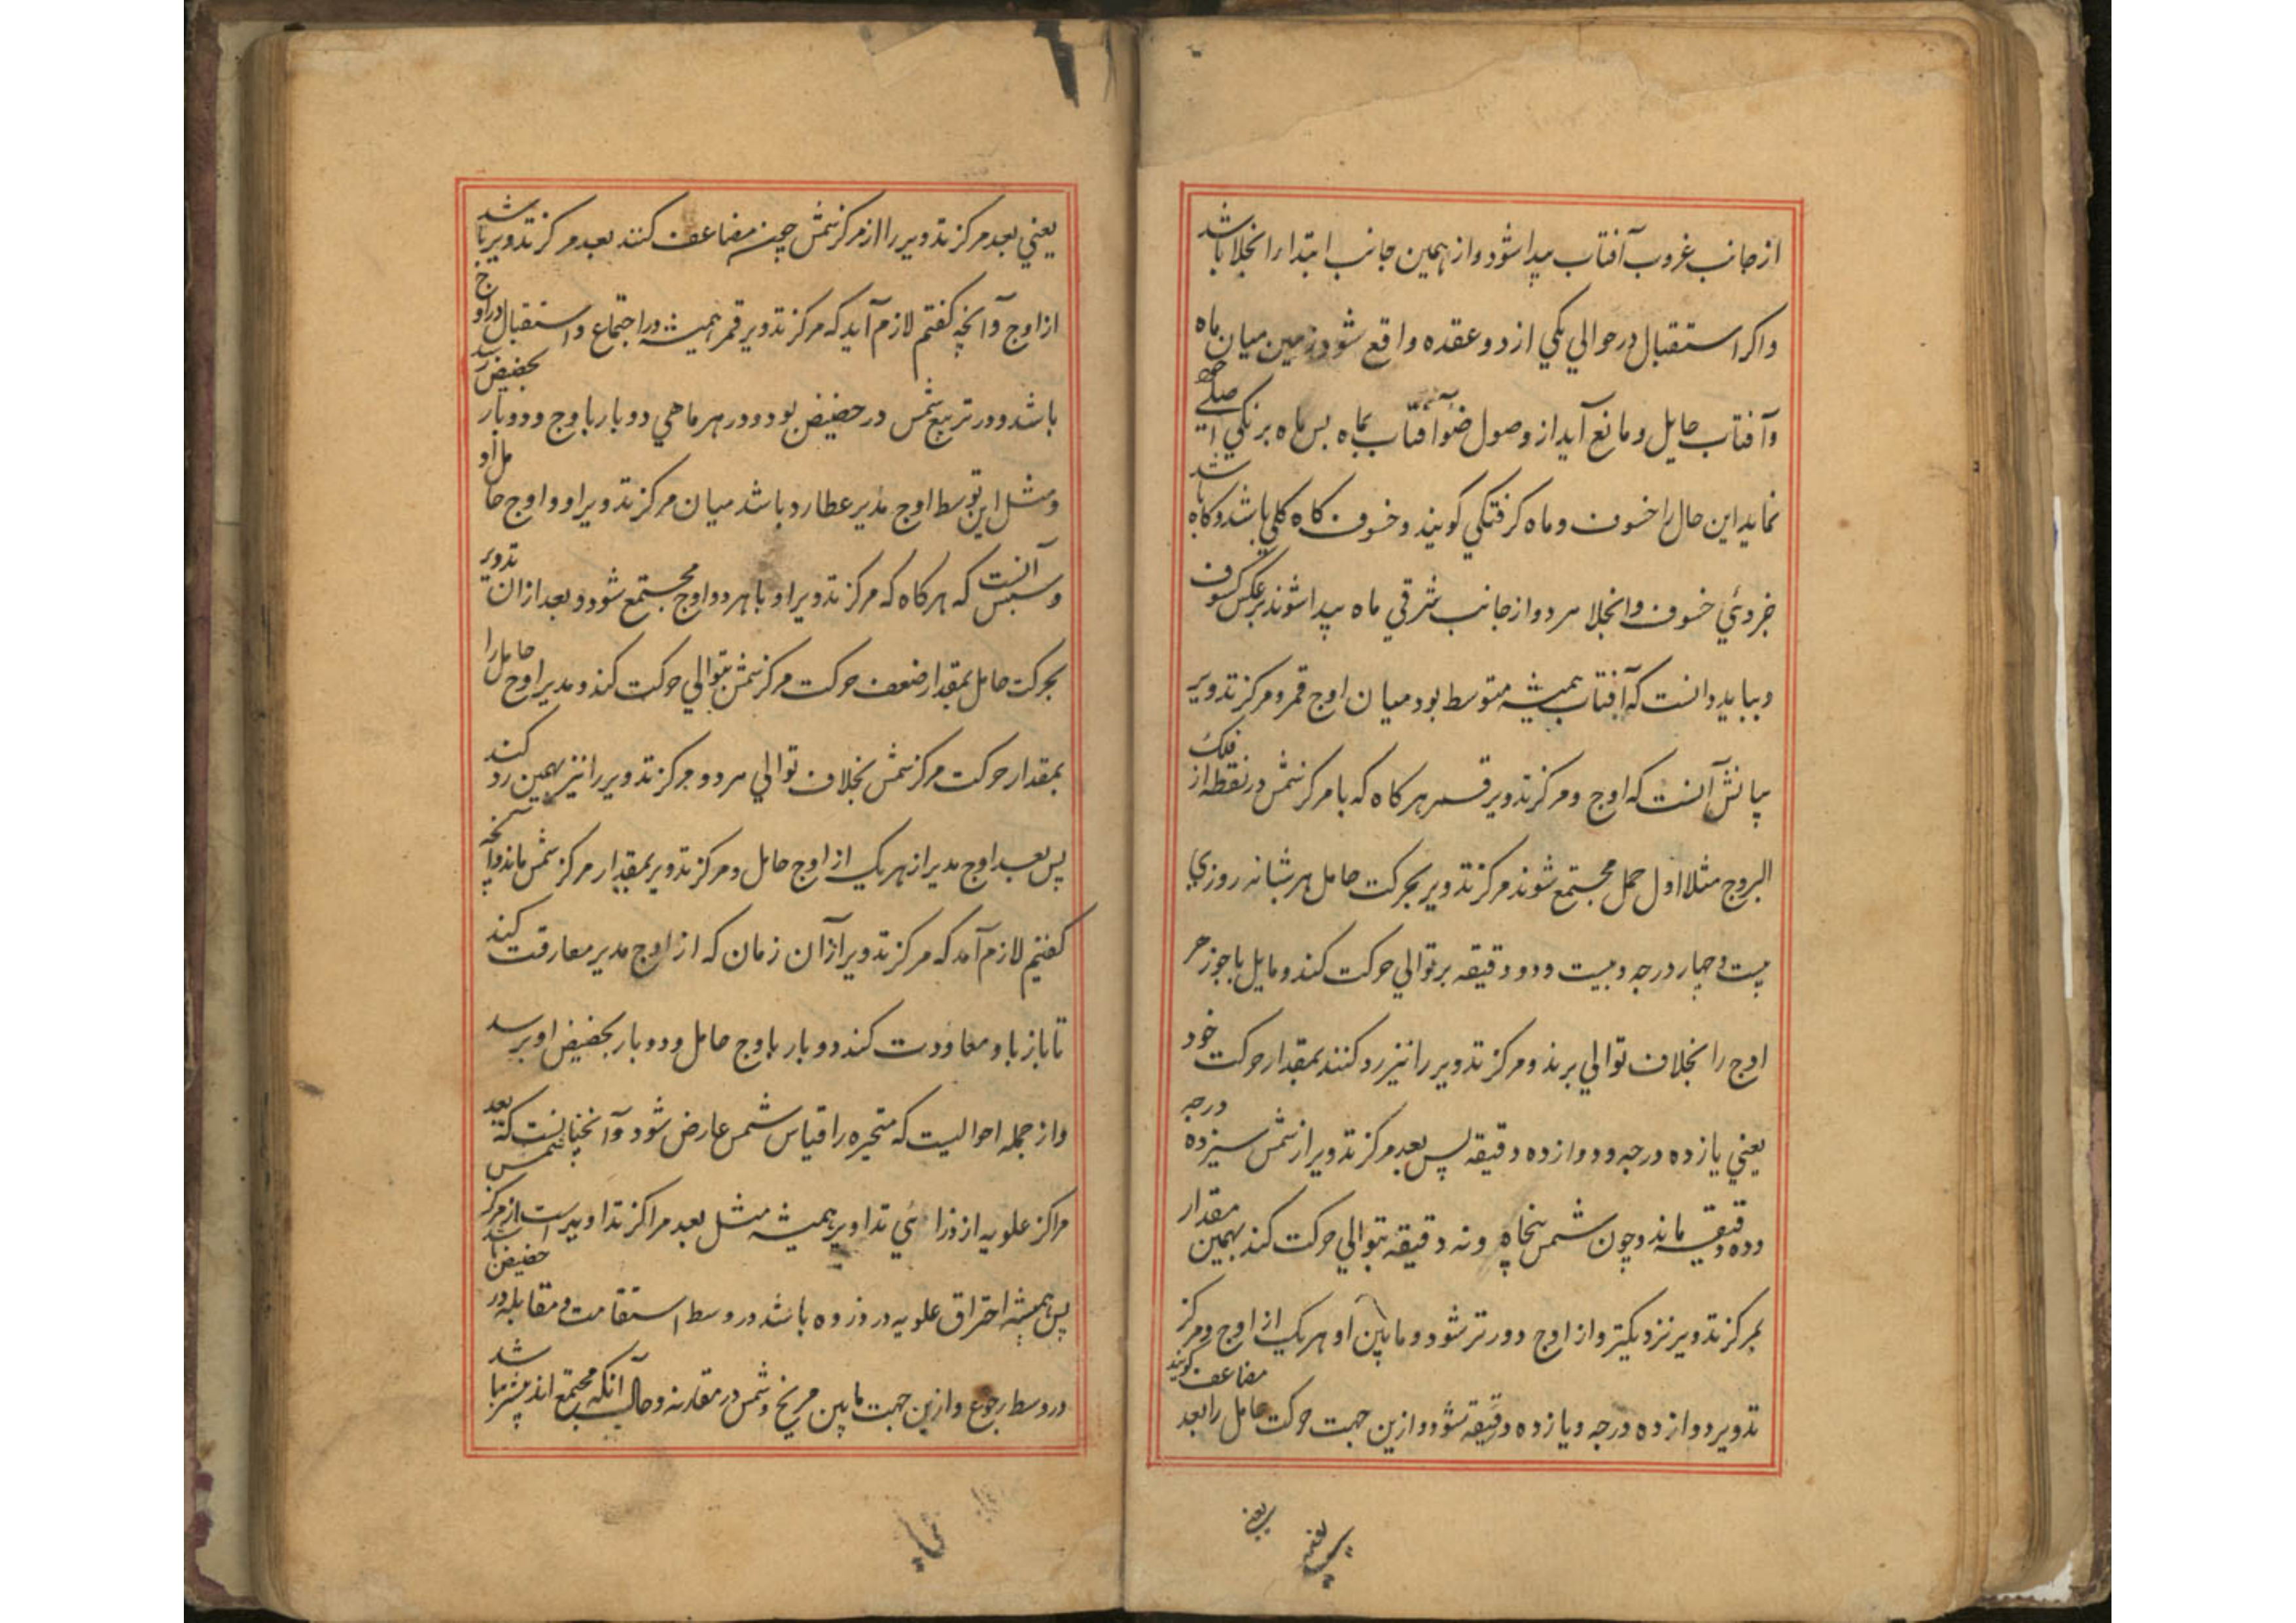 از جانب غروب آفتاب پیدا شود و از همین جانب ابتدا را انجلا باشد
واکر استقبال در حوالي یکي از دو عقده واقع شود زمین میان ماه
وآفتاب حایل و مانع آید از وصول ضوآفتاب بماه بس ماه برنکي اصلي خود
نماید این حال را خسوف و ماه کرفتکي کویند و خسوف کاه کلي باشد و کاه باشد
جزوئي خسوف وانجلا هر دو از جانب شرقي ماه پیدا شوند بر عکس کسوف
و بباید دانست که آفتاب همیشه متوسط بود میان اوج قمر و مرکز تدویر
بیانش آنست که اوج و مرکز تدویر قمر هر کاه که با مرکز شمس در نقطه از فلک
البروج مثلا اول حمل مجتمع شوند مرکز تدویر بحرکت حامل هر شبانه روزي
بیست و چهار درجه و بیست و دو دقیقه بر توالي حرکت کند و مایل با جوزهر
اوج را بخلاف توالي برند و مرکز تدویر را نیز رد کنند بمقدار حرکت خود
یعني یازده درجه و دوازده دقیقه پس بعد مرکز تدویر از شمس سیزده درجه
و ده دقیقه ماند و چون شمس پنجاه و نه دقیقه بتوالي حرکت کند بهمین مقدار
بمرکز تدویر نزدیکتر و از اوج دورتر شود و مابین او هر یک از اوج و مرکز
تدویر دوازده درجه و یازده دقیقه شود و ازین جهت حرکت حامل را بعد مضاعف کویند
یعني بعد مرکز تدویر را از مرکز شمس چون مضاعف کنند بعد مرکز تدویر باشد
از اوج وآنچه کفتم لازم آید که مرکز تدویر قمر همیشه در اجتماع و استقبال در اوج
باشد و در تربیع شمس در حضیض بود و در هر ماهي دو بار باوج و دو بار بحضیض رسد
و مثل این توسط اوج مدیر عطارد باشد میان مرکز تدویر او و اوج حامل او
وسببش آنست که هر کاه که مرکز تدویر او با هر دو اوج مجتمع شود و بعد از ان تدویر
بحرکت حامل بمقدار ضعف حرکت مرکز شمس بتوالي حرکت کند و مدیر اوج حامل را
بمقدار حرکت مرکز شمس بخلاف توالي برد و مرکز تدویر را نیز بهمین رد کند
پس بعد اوج مدیر از هر یک از اوج حامل و مرکز تدویر بمقدار مرکز شمس ماند وآنچه
کفتیم لازم آمد که مرکز تدویر از آن زمان که از اوج مدیر مفارقت کند
تا باز باو معاودت کند دو بار باوج حامل و دو بار بحضیض او برسد
و از جمله احوالیست که متحیره را قیاس شمس عارض شود وآنچنانست که بعد
مراکز علویه از ذرا ئي تداویر همیشه مثل بعد مراکز تداویر است از مرکز شمس
پس همیشه احتراق علویه در ذروه باشد در وسط استقامت و مقابله در حضیض باشد
در وسط رجوع و ازین جهت مابین مریخ و شمس در مقارنه و حال آنکه مجتمع اند بیشتر باشد